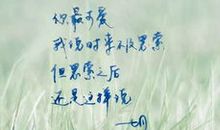 你最可爱
我说时来不及思索
但思索之后
还是这样说